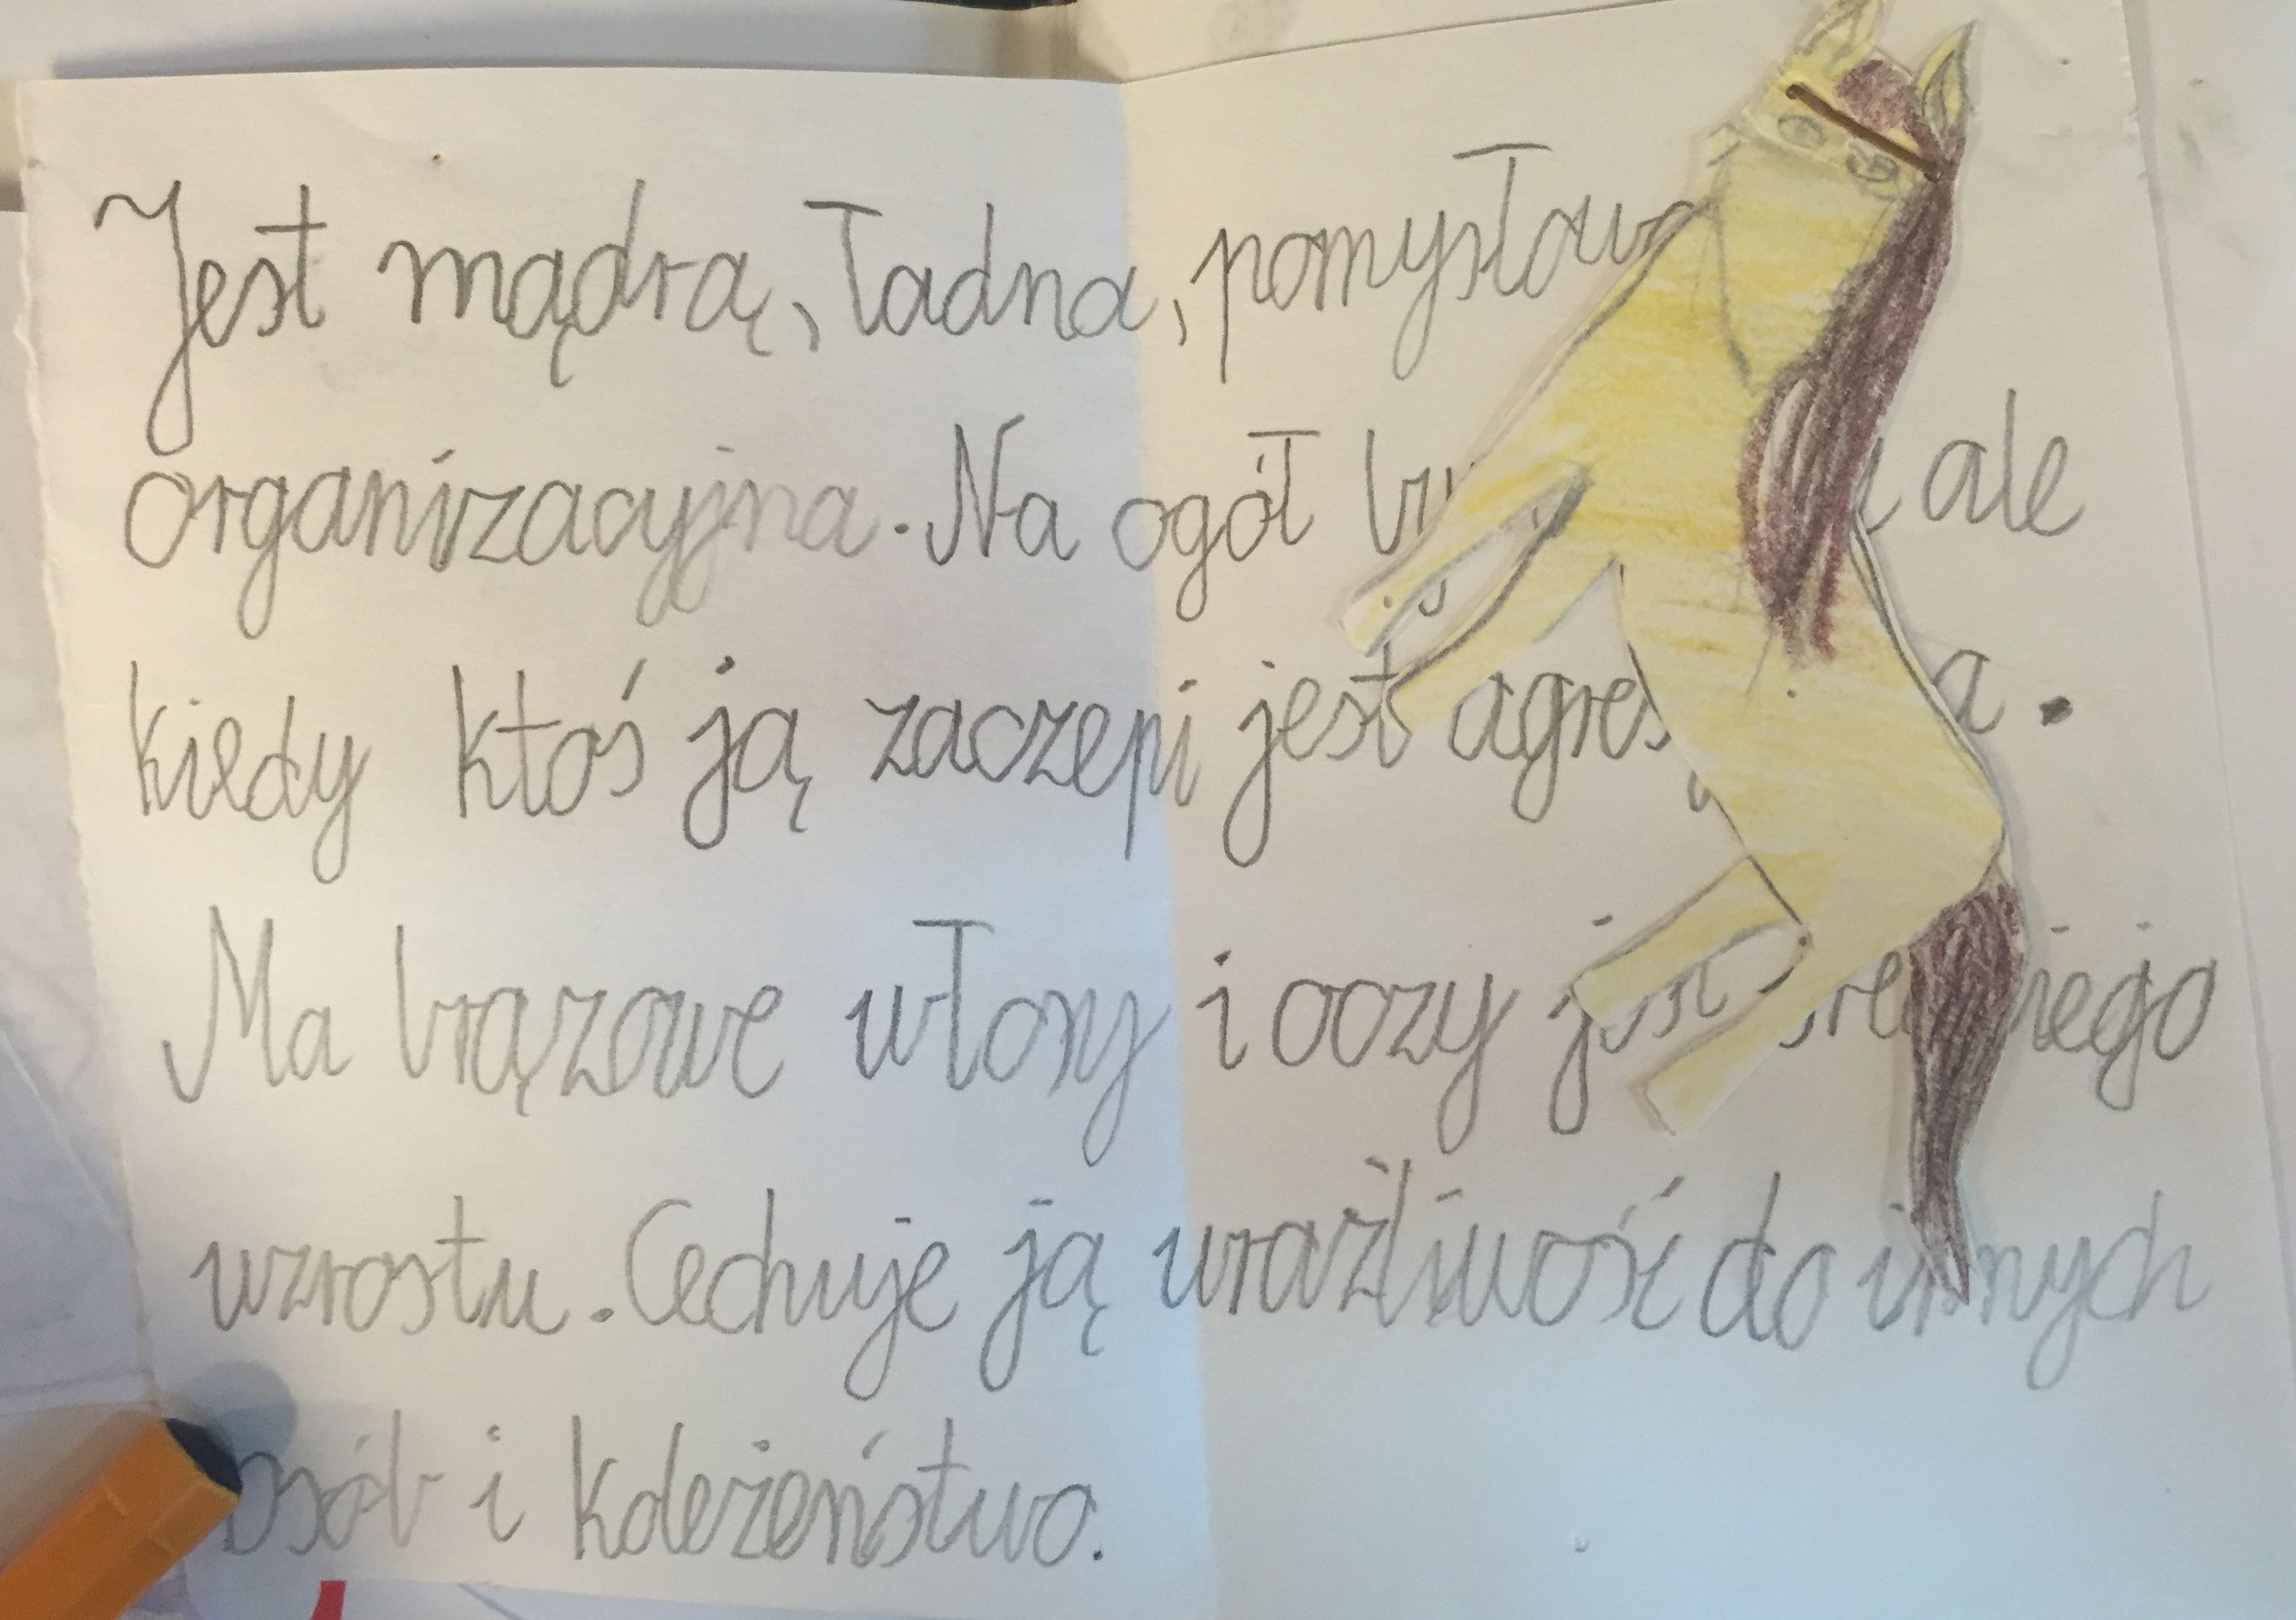 Jest mądrą, ładna, pomysłowa
organizacyjna. Na ogół ale
kiedy ktoś ją zaczepi jest
Ma brązowe włosy i oczy jest średniego
wzrostu. Cechuje ją wrażliwość do innych
osób i koleżeństwo.